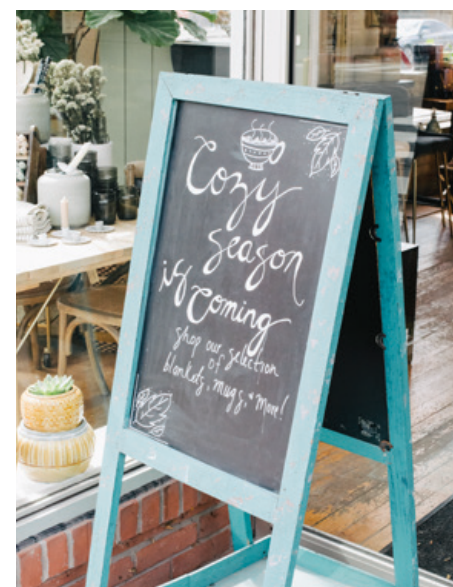 Cozy
season
is Coming
shop our selection
of
blankets, mugs, & more!